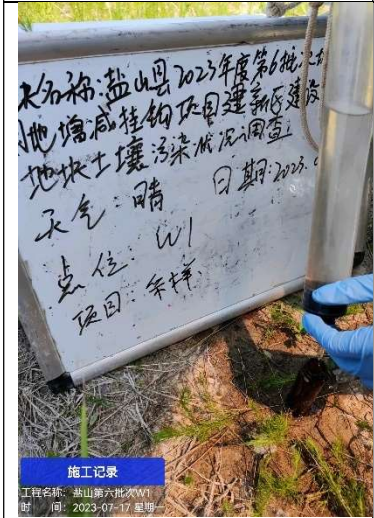 块名称:盐山县2023年度第6批次
地增减挂钩项目建新区建设
地块土壤污染状况调查
天气:晴 日期:2023.
点位:W1
项目:采样
施工记录
工程名称:盐山第六批次W1
时 间:2023-07-17 星期一